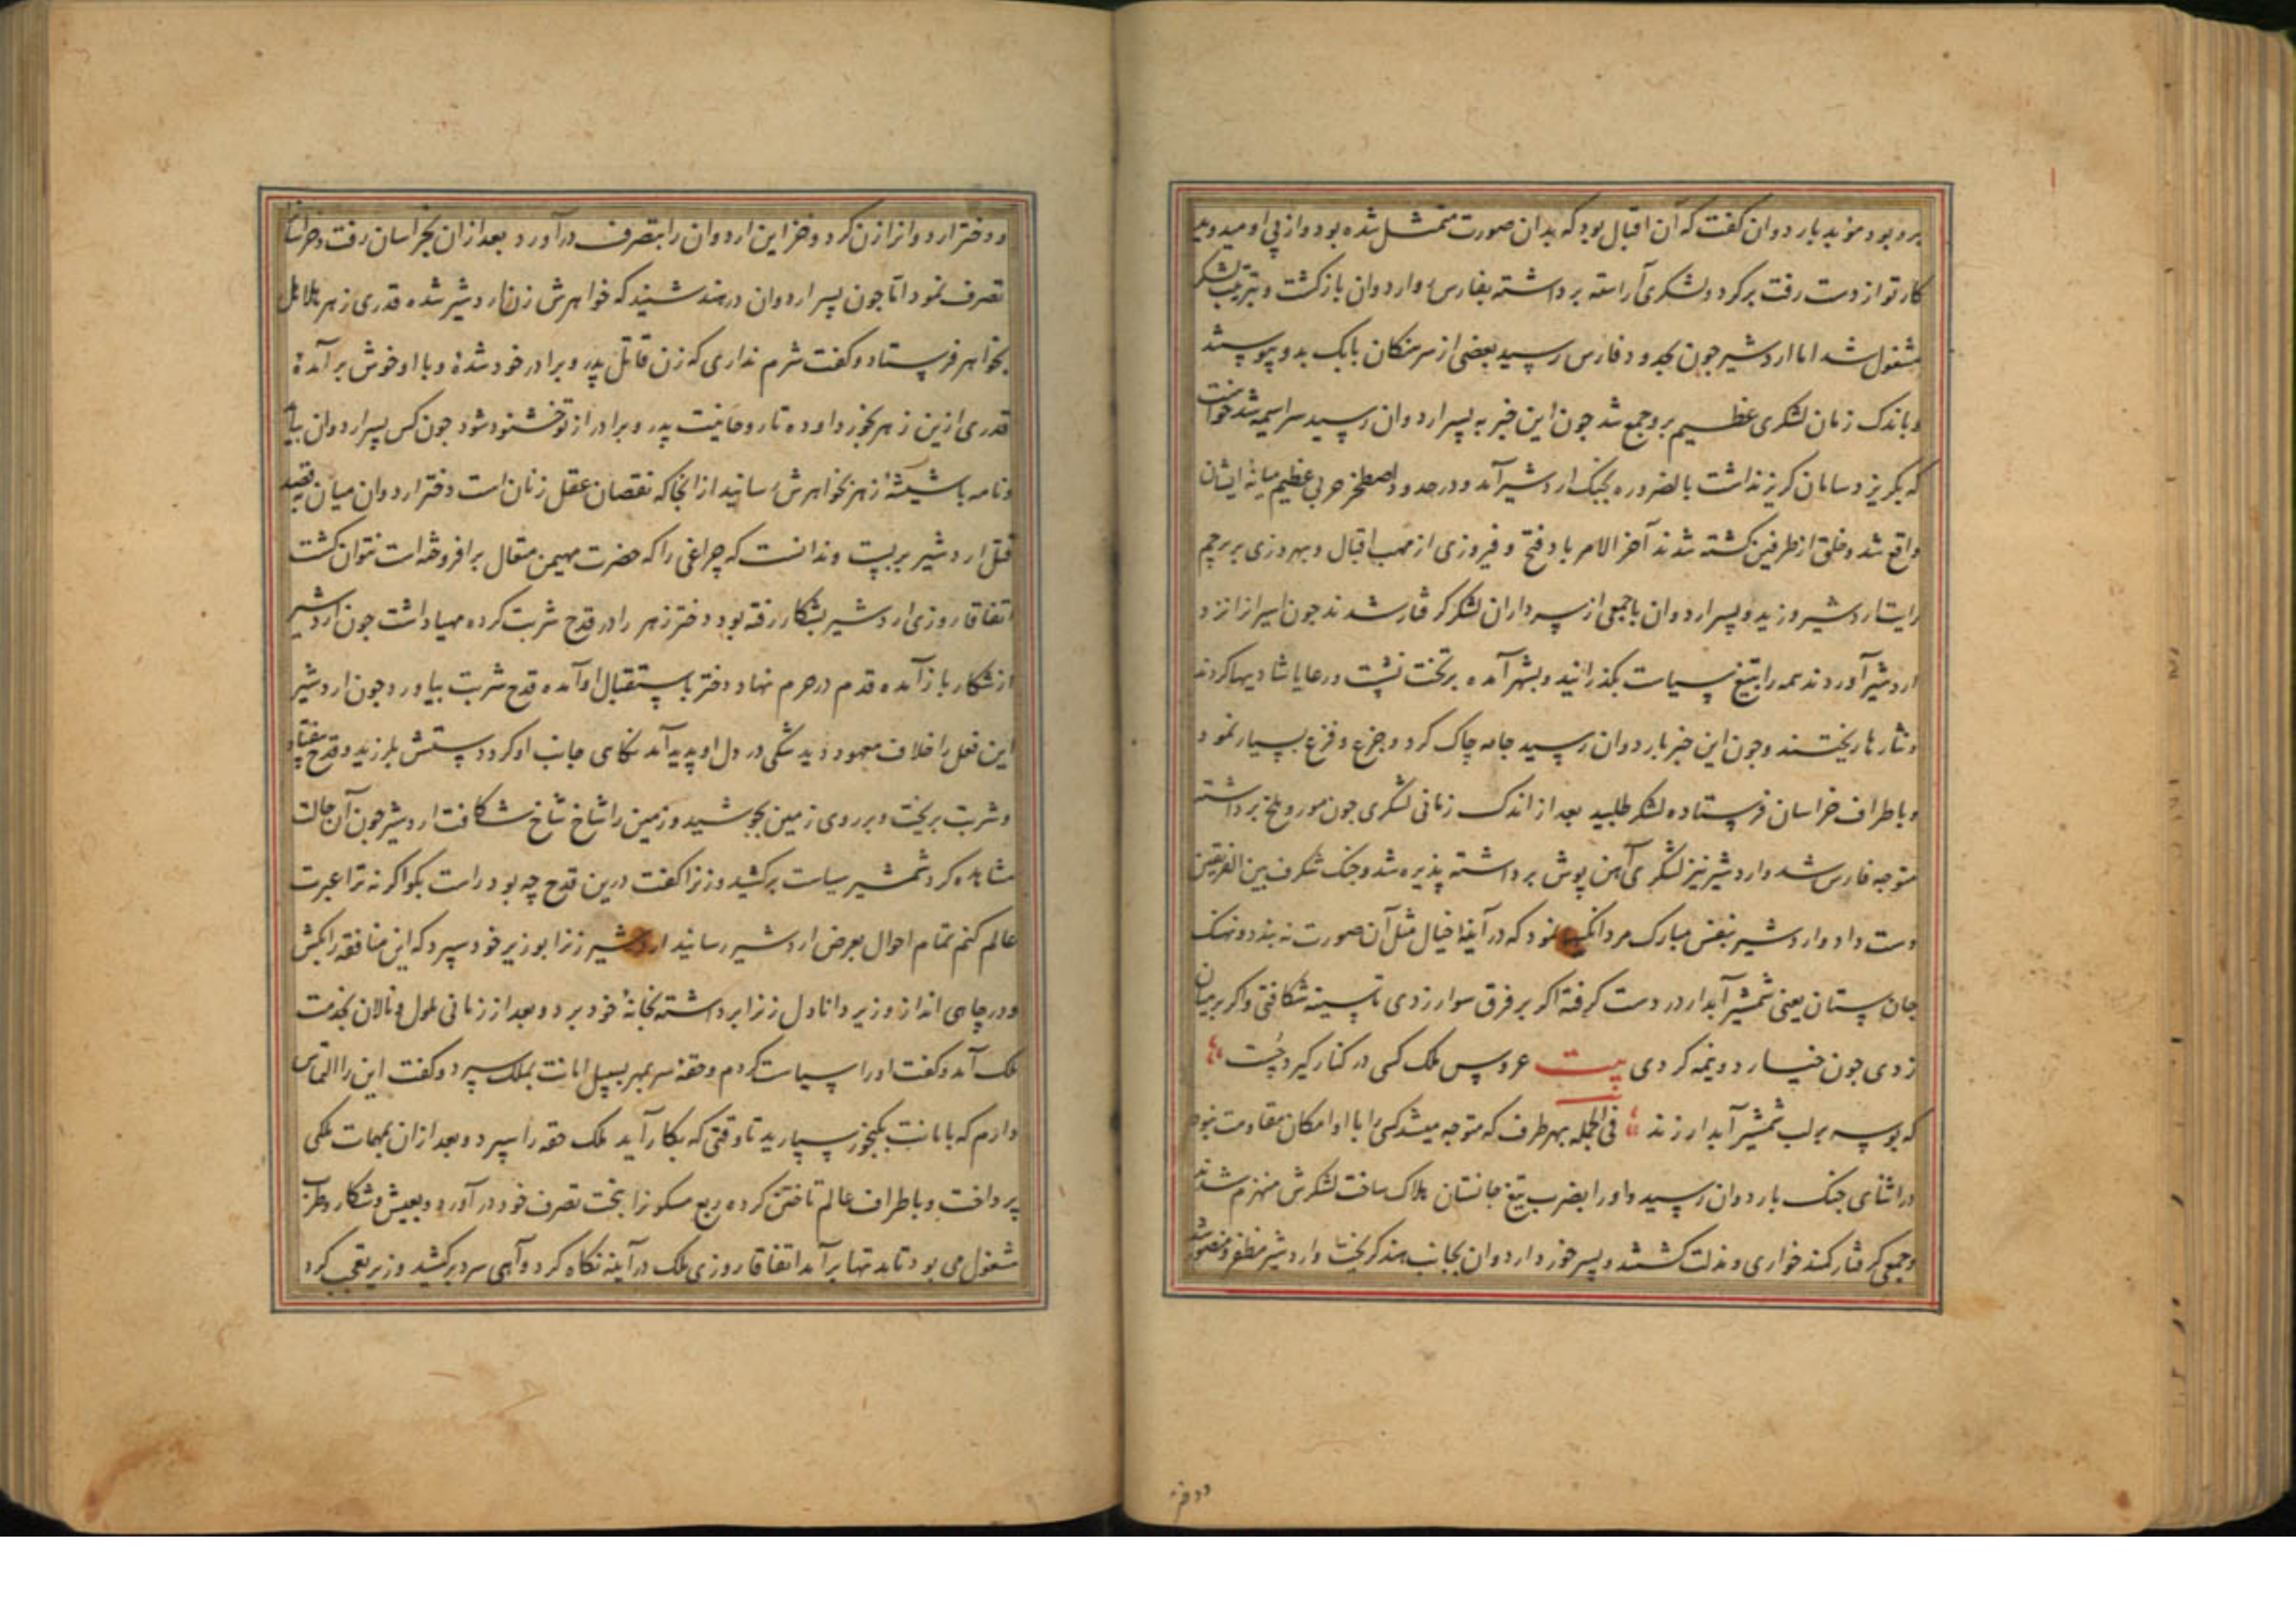 برده بود موبد بار دوان کفت که آن اقبال بود که بدان صورت متمثل شده بود و از پی او میدوید
کار تو از دست رفت بر کرد و لشکری آراسته برداشته بفارس و اردوان بازکشت و بترتیب لشکر
مشغول شد اما اردشیر جون بحدود فارس رسید بعضی از سرهنکان بابک بدو پیوستند
و باندک زمان لشکری عظیم برو جمع شد جون این خبر به پسر اردوان رسید سراسیمه شد خواست
که بکریزد سامان کریز نداشت بالضروره بجنک اردشیر آمد و در حدود اصطخر حربی عظیم میانهٔ ایشان
واقع شد و خلق از طرفین کشته شدند آخر الامر باد فتح و فیروزی از مهب اقبال و بهروزی بر پرچم
رایت اردشیر وزید و پسر اردوان با جمعی از سرداران لشکر کرفتار شدند جون اسیرانرا نزد
اردشیر آوردند همه را بتیغ سیاست بکذرانید و بشهر آمده بر تخت نشست و رعایا شادیها کردند
و نثارها ریختند و جون این خبر باردوان رسید جامه چاک کرد و جزع و فزع بسیار نمود
و باطراف خراسان فرستاده لشکر طلبید بعد از اندک زمانی لشکری جون مور و ملخ برداشته
متوجه فارس شد و اردشیر نیز لشکری آهن پوش برداشته پذیره شد و جنک شکرف بین الفریقین
دست داد و اردشیر بنفس مبارک مردانکیها نمود که در آینهٔ خیال مثل آن صورت نه بندد و نهنک
جان ستان یعنی شمشیر آبدار در دست کرفته اکر بر فرق سوار زدی تا سینه شکافتی و اکر بر میان
زدی جون خیار دو نیمه کردی بیت عروس ملک کسی در کنار کیرد چست
که بوسه بر لب شمشیر آبدار زند فی الجمله بهر طرف که متوجه میشد کسی را با او امکان مقاومت نبود
در اثنای جنک باردوان رسید و او را بضرب تیغ جانستان هلاک ساخت لشکرش منهزم شدند
و جمعی کرفتار کمند خواری و مذلت کشتند و پسر خورد اردوان بجانب هند کریخت و اردشیر مظفر و منصور شد
و دختر
و دختر اردوانرا زن کرد و خزاین اردوان را بتصرف درآورد بعد از آن بخراسان رفت و خراسان
تصرف نمود اتا جون پسر اردوان در هند شنید که خواهرش زن اردشیر شده قدری زهر هلاهل
بخواهر فرستاد و کفت شرم نداری که زن قاتل پدر و برادر خود شدهٔ و با او خوش برآمدهٔ
قدری ازین زهر بخورد او ده تا روحانیت پدر و برادر از تو خشنود شود جون کس پسر اردوان بیامد
و نامه با شیشهٔ زهر بخواهرش رسانید از آنجا که نقصان عقل زنان است دختر اردوان میان بقصد
قتل اردشیر بربست و ندانست که چراغی را که حضرت مهیمن متعال برافروخته است نتوان کشت
اتفاقا روزی اردشیر بشکار رفته بود دختر زهر را در قدح شربت کرده مهیا داشت جون اردشیر
از شکار باز آمده قدم در حرم نهاد دختر باستقبال او آمده قدح شربت بیاورد و جون اردشیر
این فعل را خلاف معهود دید شکی در دل او پدید آمد نکاهی جانب او کرد دستش بلرزید و قدح بیفتاد
و شربت بریخت و بر روی زمین بجوشید و زمین را شاخ شاخ شکافت اردشیر جون آن حالت
مشاهده کرد شمشیر سیاست برکشید و زنرا کفت درین قدح چه بود راست بکو اکر نه ترا عبرت
عالم کنم تمام احوال بعرض اردشیر رسانید اردشیر زنرا بوزیر خود سپرد که این منافقه را بکش
و در چاهی انداز وزیر دانا دل زنرا برداشته بخانهٔ خود برد و بعد از زمانی ملول و نالان بخدمت
ملک آمد و کفت او را سیاست کردم و حقهٔ سر بمهر بسبیل امانت بملک سپرد و کفت این را التماس
دارم که با مانت بکنجور سپارید تا وقتی که بکار آید ملک حقه را سپرد و بعد از آن بمهمات ملکی
پرداخت و باطراف عالم تاختن کرده ربع مسکونرا بتحت تصرف خود درآورد و بعیش و شکار و طرب
مشغول می بود تا مدتها برآمد اتفاقا روزی ملک در آینه نکاه کرد و آهی سرد برکشید وزیر تعجب کرد